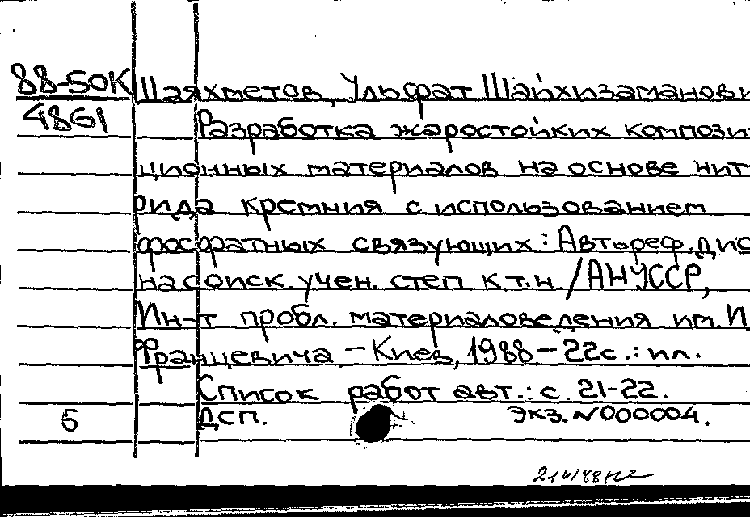 88-50К Шаяхметов, Ульфат Шайхизаманови
4861 Разработка жаростойких компози
ционных материалов на основе нит
рида кремния с использованием
фосфатных связующих: Автореф. дис
на соиск. учен. степ к.т.н /АН УССР,
Ин-т пробл. материаловедения им. И
Францевича. – Киев, 1988 – 22 с. : ил.
Список работ авт.: с. 21-22.
Б ДСП. Экз. N000004.